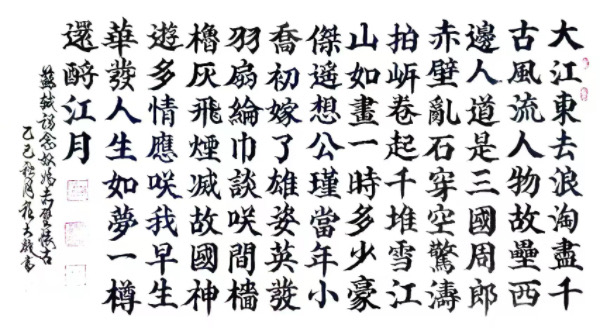 大江東去浪淘盡千
古風流人物故壘西
邊人道是三國周郎
赤壁亂石穿空驚濤
拍岍卷起千堆雪江
山如畫一時多少豪
傑遙想公瑾當年小
喬初嫁了雄姿英發
羽扇綸巾談咲間檣
櫓灰飛煙滅故國神
遊多情應咲我早生
華發人生如夢一樽
還酹江月
蘇軾詞念奴嬌赤壁懷古
乙巳秋月書